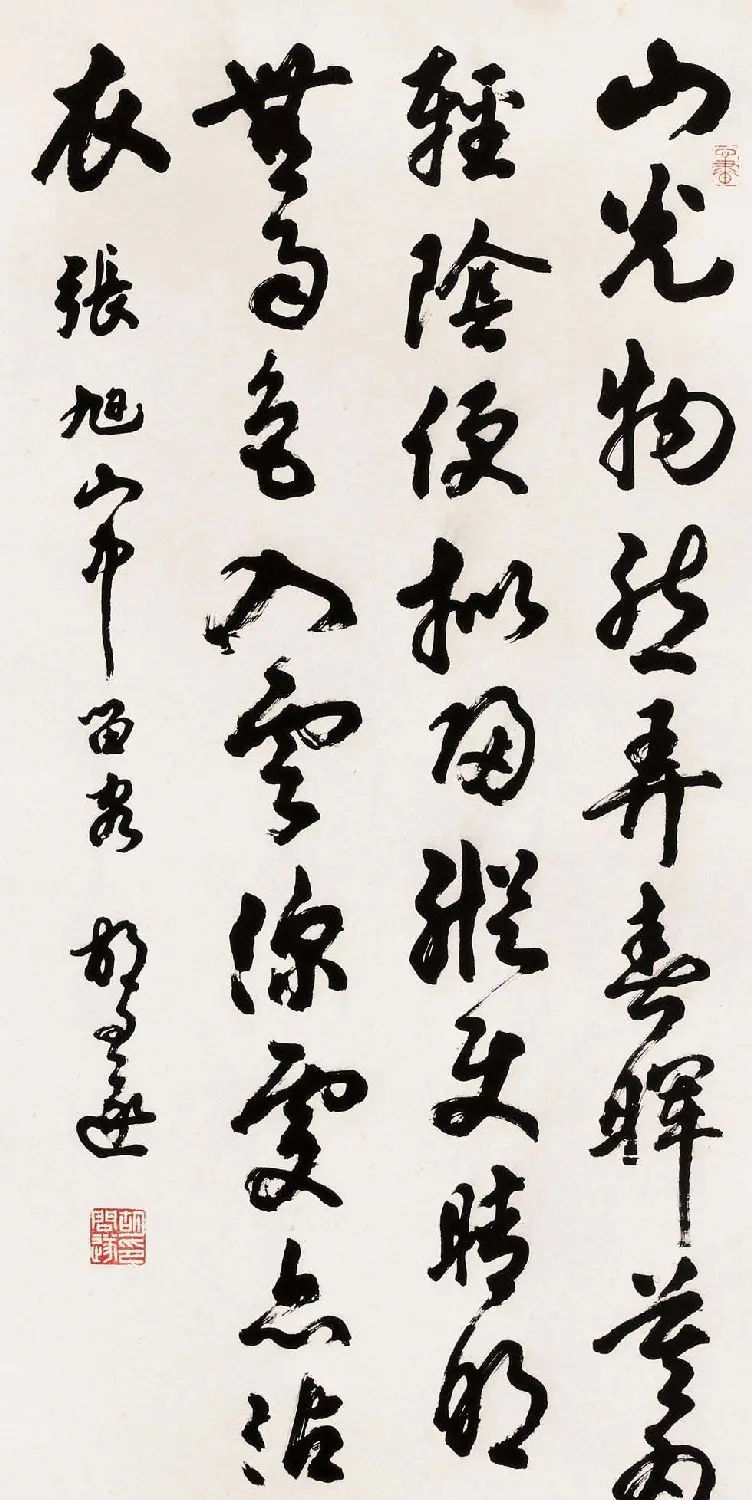 山光物態弄春暉莫為
輕陰便拟歸縱使晴明
無雨色入雲深處亦沾
衣 張旭山中留客 胡問遂
胡印問遂